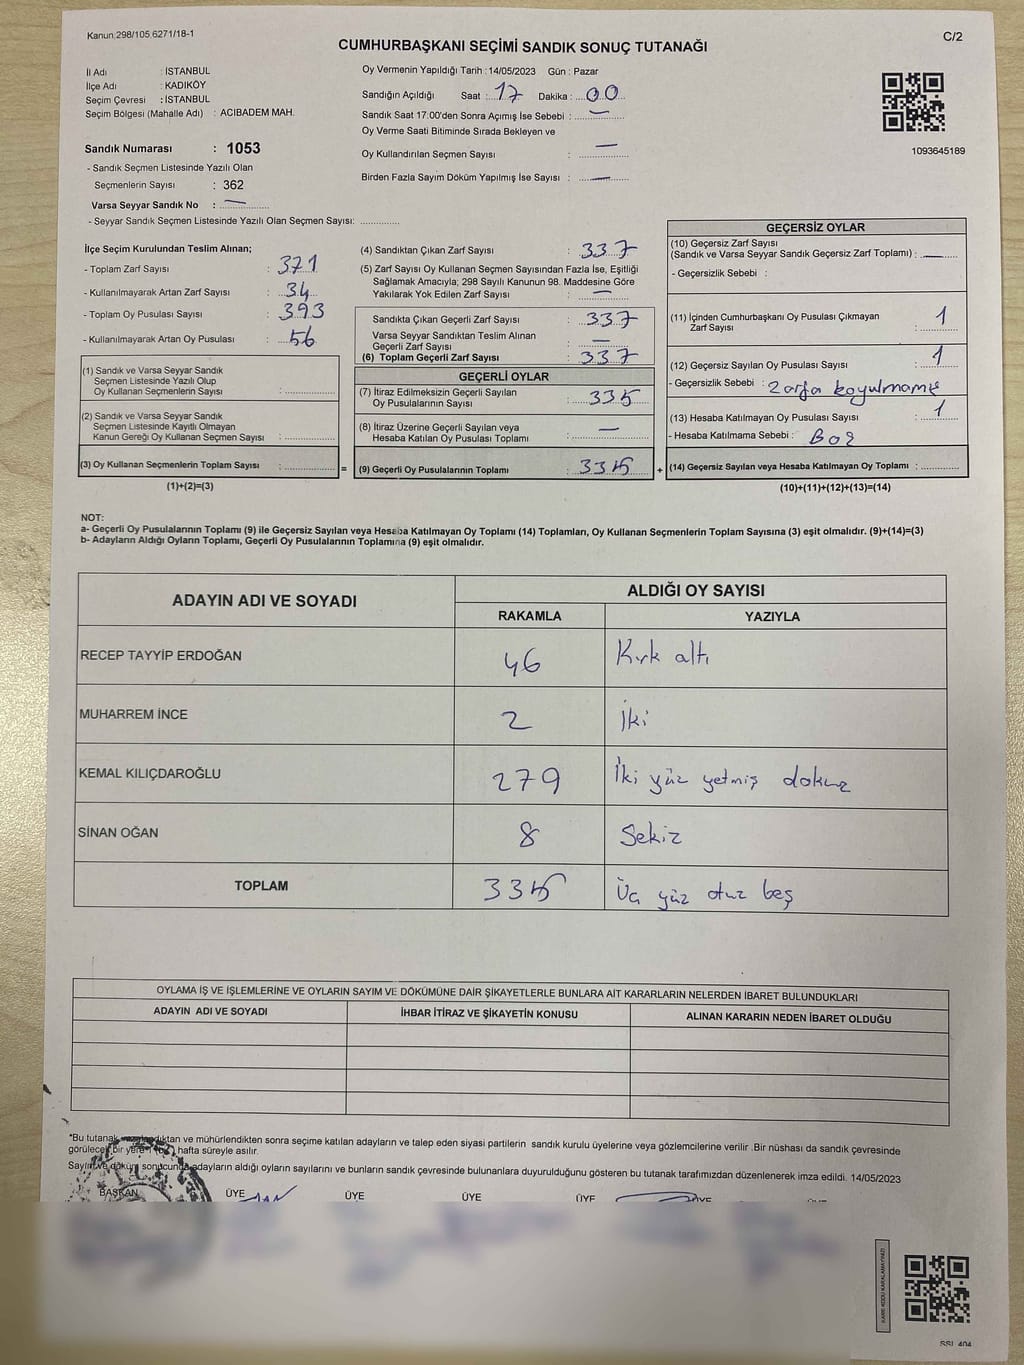 Kanun:298/105 6271/18-1
C/2
CUMHURBAŞKANI SEÇİMİ SANDIK SONUÇ TUTANAĞI
İl Adı : İSTANBUL
İlçe Adı : KADIKÖY
Seçim Çevresi : İSTANBUL
Seçim Bölgesi (Mahalle Adı) : ACIBADEM MAH.
Sandık Numarası : 1053
- Sandık Seçmen Listesinde Yazılı Olan
Seçmenlerin Sayısı : 362
Varsa Seyyar Sandık No : —
- Seyyar Sandık Seçmen Listesinde Yazılı Olan Seçmen Sayısı: ............
Oy Vermenin Yapıldığı Tarih : 14/05/2023 Gün : Pazar
Sandığın Açıldığı Saat : 17 Dakika : 00
Sandık Saat 17:00'den Sonra Açımış İse Sebebi : —
Oy Verme Saati Bitiminde Sırada Bekleyen ve
Oy Kullandırılan Seçmen Sayısı : —
Birden Fazla Sayım Döküm Yapılmış İse Sayısı : —
1093645189
İlçe Seçim Kurulundan Teslim Alınan;
- Toplam Zarf Sayısı : 371
- Kullanılmayarak Artan Zarf Sayısı : 34
- Toplam Oy Pusulası Sayısı : 393
- Kullanılmayarak Artan Oy Pusulası : 56
(1) Sandık ve Varsa Seyyar Sandık
Seçmen Listesinde Yazılı Olup
Oy Kullanan Seçmenlerin Sayısı : ............
(2) Sandık ve Varsa Seyyar Sandık
Seçmen Listesinde Kayıtlı Olmayan
Kanun Gereği Oy Kullanan Seçmen Sayısı : ............
(3) Oy Kullanan Seçmenlerin Toplam Sayısı : ............ =
(1)+(2)=(3)
(4) Sandıktan Çıkan Zarf Sayısı : 337
(5) Zarf Sayısı Oy Kullanan Seçmen Sayısından Fazla İse, Eşitliği
Sağlamak Amacıyla; 298 Sayılı Kanunun 98. Maddesine Göre
Yakılarak Yok Edilen Zarf Sayısı : —
Sandıkta Çıkan Geçerli Zarf Sayısı : 337
Varsa Seyyar Sandıktan Teslim Alınan
Geçerli Zarf Sayısı : —
(6) Toplam Geçerli Zarf Sayısı : 337
GEÇERLİ OYLAR
(7) İtiraz Edilmeksizin Geçerli Sayılan
Oy Pusulalarının Sayısı : 335
(8) İtiraz Üzerine Geçerli Sayılan veya
Hesaba Katılan Oy Pusulası Toplamı : —
(9) Geçerli Oy Pusulalarının Toplamı : 335 +
GEÇERSİZ OYLAR
(10) Geçersiz Zarf Sayısı
(Sandık ve Varsa Seyyar Sandık Geçersiz Zarf Toplamı) : —
- Geçersizlik Sebebi :
(11) İçinden Cumhurbaşkanı Oy Pusulası Çıkmayan
Zarf Sayısı : 1
(12) Geçersiz Sayılan Oy Pusulası Sayısı : 1
- Geçersizlik Sebebi : Zarfa koyulmamış
(13) Hesaba Katılmayan Oy Pusulası Sayısı : 1
- Hesaba Katılmama Sebebi : Boş
(14) Geçersiz Sayılan veya Hesaba Katılmayan Oy Toplamı : ............
(10)+(11)+(12)+(13)=(14)
NOT:
a- Geçerli Oy Pusulalarının Toplamı (9) ile Geçersiz Sayılan veya Hesaba Katılmayan Oy Toplamı (14) Toplamları, Oy Kullanan Seçmenlerin Toplam Sayısına (3) eşit olmalıdır. (9)+(14)=(3)
b- Adayların Aldığı Oyların Toplamı, Geçerli Oy Pusulalarının Toplamına (9) eşit olmalıdır.
ADAYIN ADI VE SOYADI
ALDIĞI OY SAYISI
RAKAMLA YAZIYLA
RECEP TAYYİP ERDOĞAN 46 Kırk altı
MUHARREM İNCE 2 İki
KEMAL KILIÇDAROĞLU 279 İki yüz yetmiş dokuz
SİNAN OĞAN 8 Sekiz
TOPLAM 335 Üç yüz otuz beş
OYLAMA İŞ VE İŞLEMLERİNE VE OYLARIN SAYIM VE DÖKÜMÜNE DAİR ŞİKAYETLERLE BUNLARA AİT KARARLARIN NELERDEN İBARET BULUNDUKLARI
ADAYIN ADI VE SOYADI İHBAR İTİRAZ VE ŞİKAYETİN KONUSU ALINAN KARARIN NEDEN İBARET OLDUĞU
*Bu tutanak dıktan ve mühürlendikten sonra seçime katılan adayların ve talep eden siyasi partilerin sandık kurulu üyelerine veya gözlemcilerine verilir .Bir nüshası da sandık çevresinde
görülecek bir yere hafta süreyle asılır.
Sayım ve döküm sonucunda adayların aldığı oyların sayılarını ve bunların sandık çevresinde bulunanlara duyurulduğunu gösteren bu tutanak tarafımızdan düzenlenerek imza edildi. 14/05/2023
BAŞKAN ÜYE ÜYE ÜYE ÜYE ÜYE ÜYE